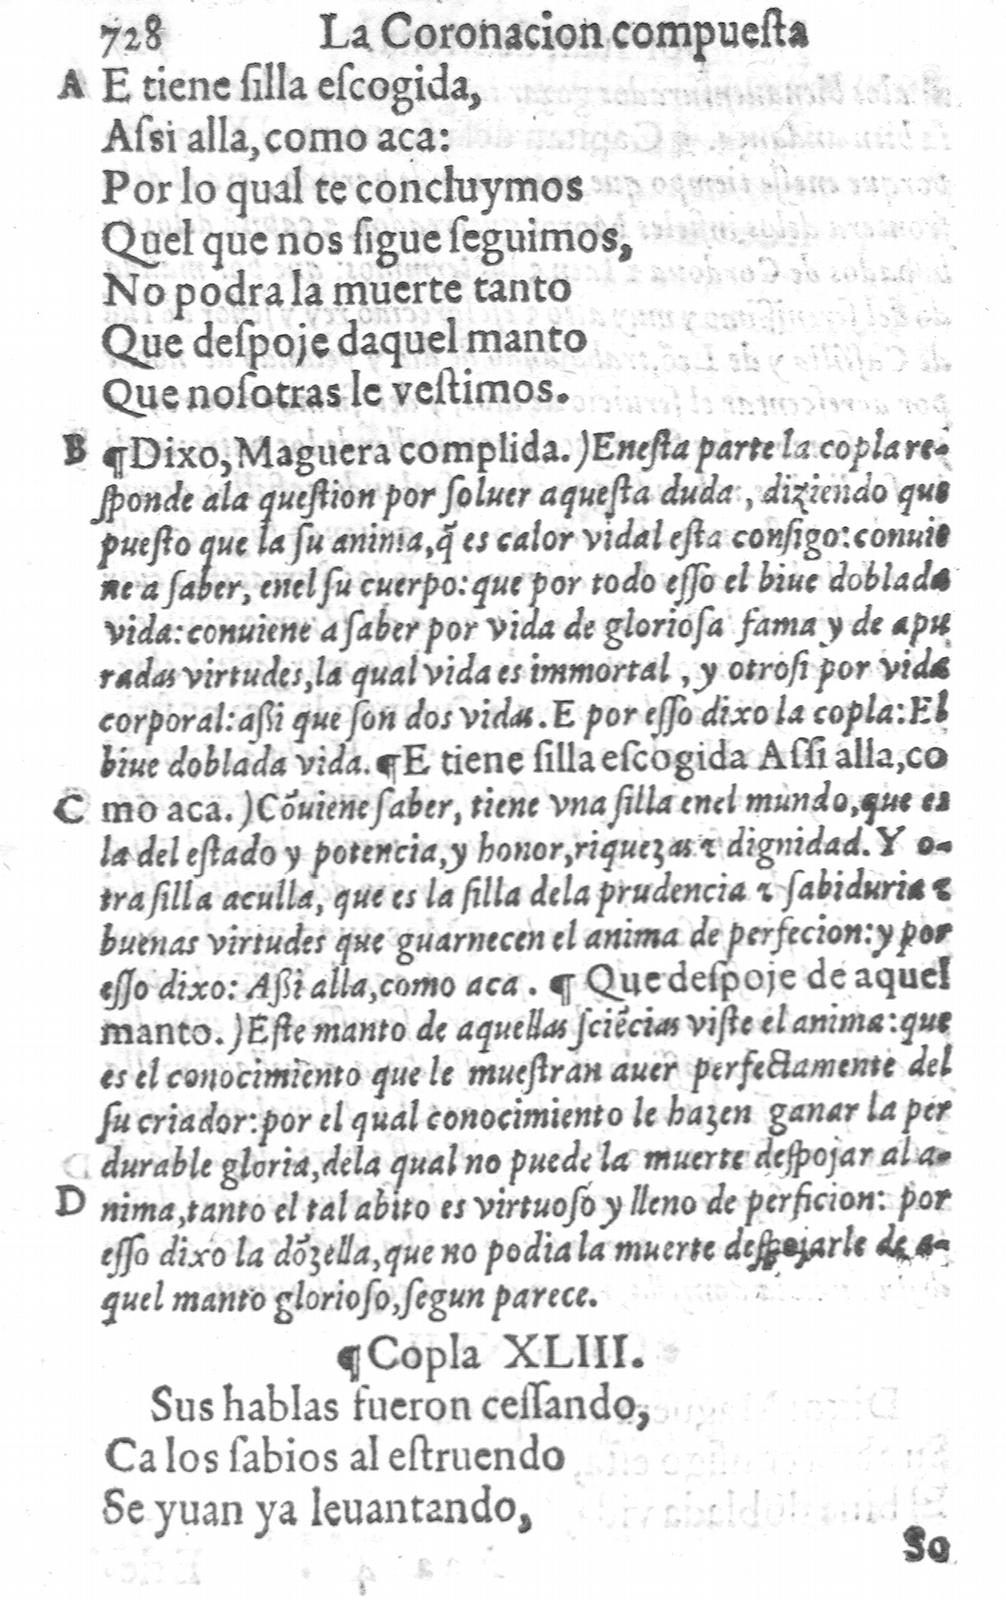 728 La Coronacion compueſta
A E tiene ſilla eſcogida,
Aſsi alla, como aca:
Por lo qual te concluymos
Quel que nos ſigue ſeguimos,
No podra la muerte tanto
Que deſpoje daquel manto
Que noſotras le veſtimos.
B ¶Dixo, Maguera complida. )Eneſta parte la copla re-
ſponde ala queſtion por ſoluer aqueſta duda, diziendo que
pueſto que la ſu anima, q̃ es calor vidal eſta conſigo: conuie
ne a ſaber, enel ſu cuerpo: que por todo eſſo el biue doblada
vida: conuiene a ſaber por vida de glorioſa fama y de apu
radas virtudes, la qual vida es immortal, y otroſi por vida
corporal: aßi que ſon dos vidas. E por eſſo dixo la copla: El
biue doblada vida. ¶E tiene ſilla eſcogida Aſſi alla, co
C mo aca. )Cõuiene ſaber, tiene vna ſilla enel mundo, que es
la del eſtado y potencia, y honor, riquezas ꝛ dignidad. Y o-
tra ſilla aculla, que es la ſilla dela prudencia ꝛ ſabiduria ꝛ
buenas virtudes que guarnecen el anima de perfecion: y por
eſſo dixo: Aßi alla, como aca. ¶ Que deſpoje de aquel
manto. )Eſte manto de aquellas ſciẽcias viſte el anima: que
es el conocimiento que le mueſtran auer perfectamente del
ſu criador: por el qual conocimiento le hazen ganar la per
durable gloria, dela qual no puede la muerte deſpojar al a-
D nima, tanto el tal abito es virtuoſo y lleno de perficion: por
eſſo dixo la dõzella, que no podia la muerte deſpojarle de a-
quel manto glorioſo, ſegun parece.
¶Copla XLIII.
Sus hablas fueron ceſſando,
Ca los ſabios al eſtruendo
Se yuan ya leuantando,
So